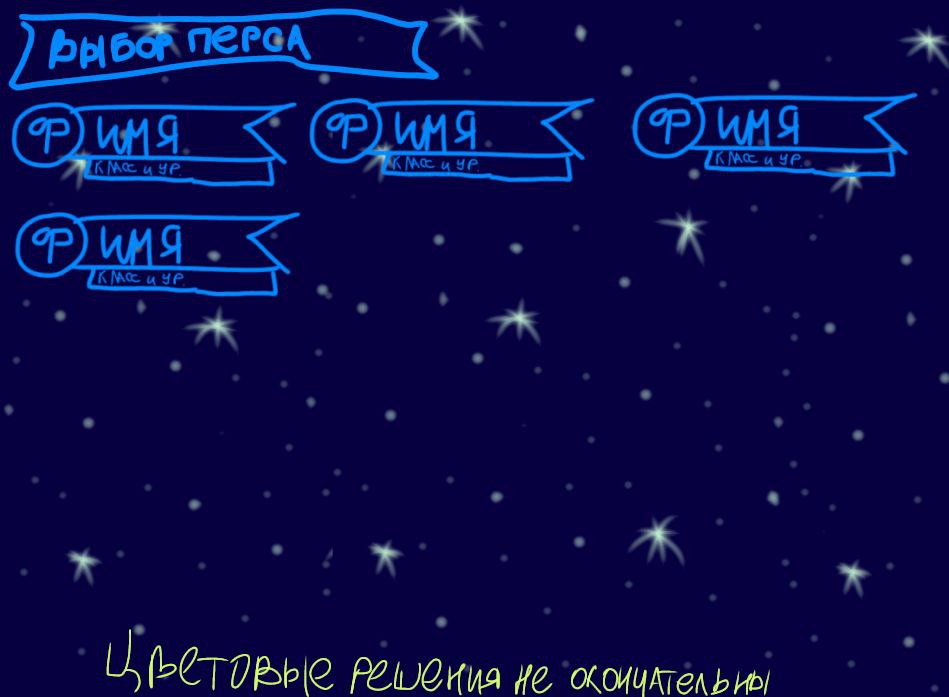 ВЫБОР ПЕРСА
Ф ИМЯ
КЛАСС И УР.
Ф ИМЯ
КЛАСС И УР.
Ф ИМЯ
КЛАСС И УР.
Ф ИМЯ
КЛАСС И УР.
Цветовые решения не окончательны